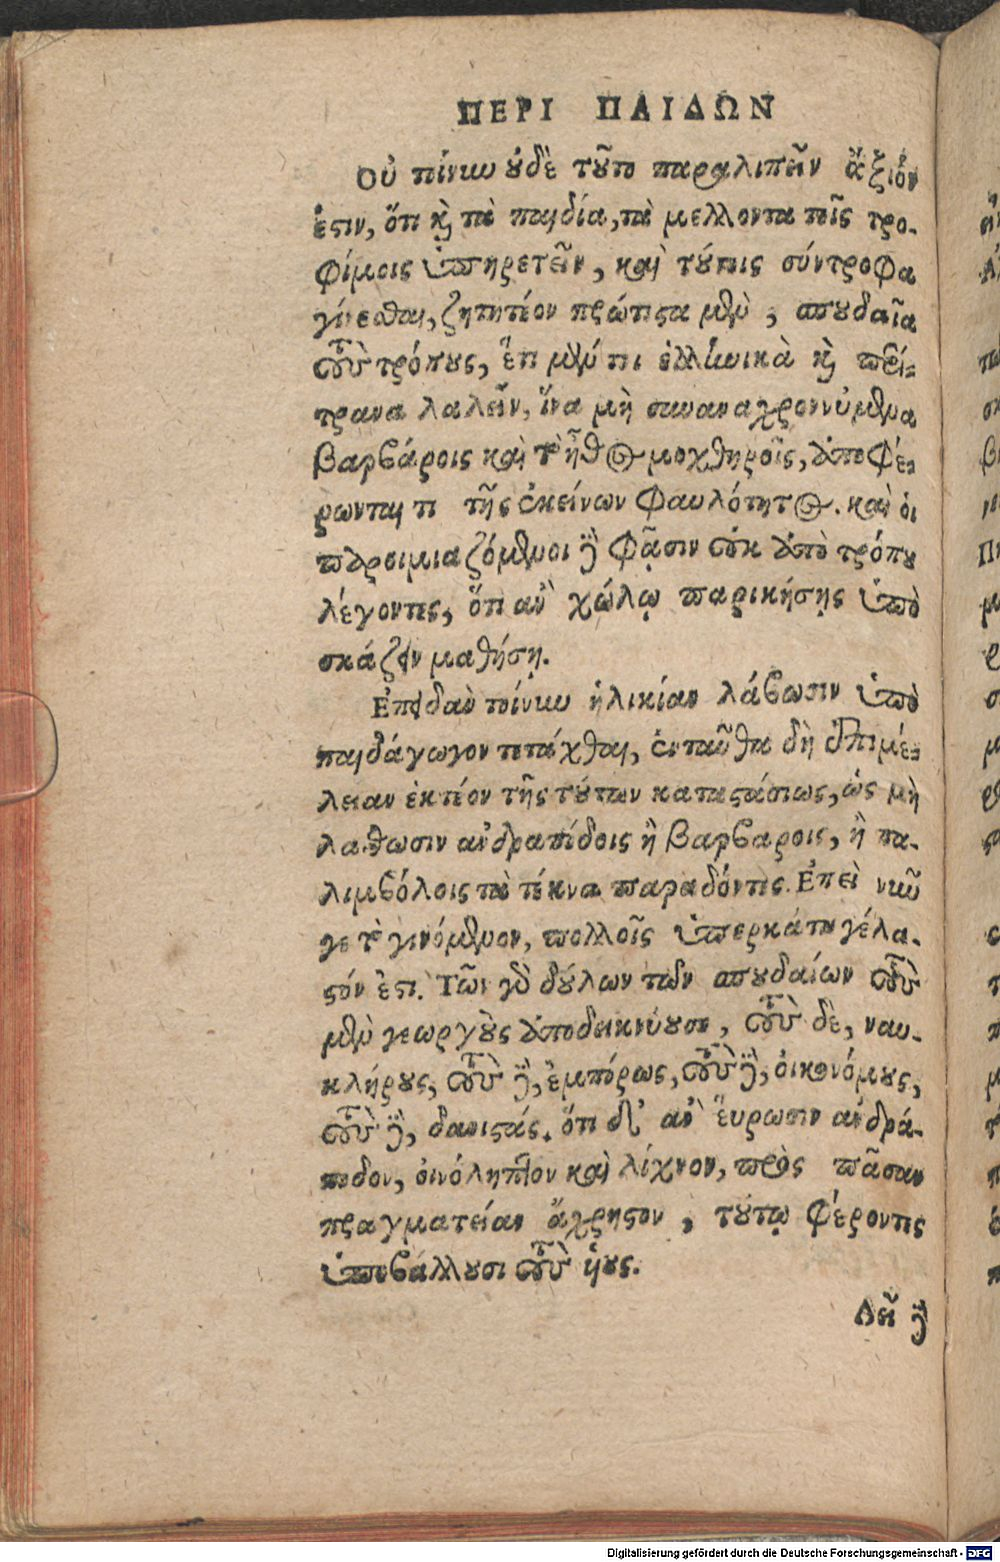 ΠΕΡΙ ΠΑΙΔΩΝ
Οὐ τοίνυν οὐδὲ τοῦτο παραλιπεῖν ἄξιόν
ἐστιν, ὅτι καὶ τὰ παιδία, τὰ μέλλοντα τοῖς τρο-
φίμοις ὑπηρετεῖν, καὶ τούτοις σύντροφα
γίνεσθαι, ζητητέον πρώτιστα μὲν, σπουδαῖα
τοὺς τρόπους, ἔτι μέντοι ἑλληνικὰ καὶ περί-
τρανα λαλεῖν, ἵνα μὴ συναναχρωννύμενα
βαρβάροις καὶ τὸ ἦθος μοχθηροῖς, ἀποφέ-
ρωνταί τι τῆς ἐκείνων φαυλότητος. καὶ οἱ
παροιμιαζόμενοι δέ φασιν οὐκ ἀπὸ τρόπου
λέγοντες, ὅτι ἂν χώλῳ παρικήσῃς ὑπὸ
σκάζειν μαθήσῃ.
Ἐπειδὰν τοίνυν ἡλικίαν λάβωσιν ὑπὸ
παιδάγωγον τετάχθαι, ἐνταῦθα δὴ ἐπιμέ-
λειαν ἑκτέον τῆς τούτων καταστάσεως, ὡς μὴ
λάθωσιν ἀνδραπόδοις ἢ βαρβάροις, ἢ πα-
λιμβόλοις τὰ τέκνα παραδόντες. Ἐπεὶ νῦν
γε τὸ γινόμενον, πολλοῖς ὑπερκάταγέλα-
στόν ἐστι. Τῶν γὰρ δούλων τῶν σπουδαίων τοὺς
μὲν γεωργοὺς ἀποδεικνύουσι, τοὺς δὲ, ναυ-
κλήρους, τοὺς δὲ, ἐμπόρους, τοὺς δὲ, οἰκονόμους,
τοὺς δὲ, δανιστάς. ὅτι δ' ἂν εὕρωσιν ἀνδρά-
ποδον, οἰνόληπτον καὶ λίχνον, πρὸς πᾶσαν
πραγματείαν ἄχρηστον, τούτῳ φέροντες
ὑποβάλλουσι τοὺς ὑιούς.
Δεῖ δὲ
Digitalisierung gefördert durch die Deutsche Forschungsgemeinschaft - DFG